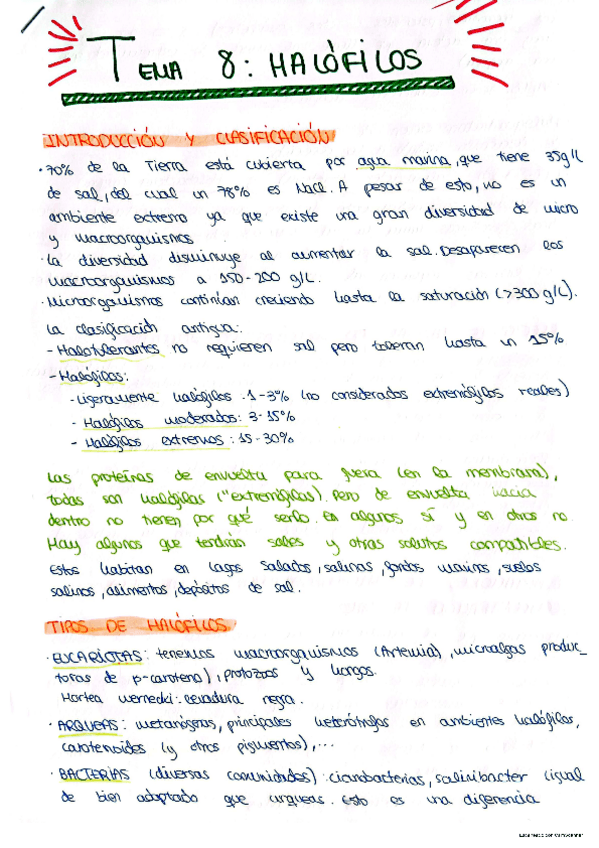 TEMA 8: HALÓFILOS
INTRODUCCIÓN Y CLASIFICACIÓN
· 70% de la Tierra está cubierta por agua marina, que tiene 35g/L
de sal, del cual un 78% es NaCl. A pesar de esto, no es un
ambiente extremo ya que existe una gran diversidad de micro
y macroorganismos.
· La diversidad disminuye al aumentar la sal. Desaparecen los
macroorganismos a 150-200 g/L.
· Microorganismos continúan creciendo hasta la saturación (>300 g/L).
La clasificación antigua:
- Halotolerantes no requieren sal pero toleran hasta un 15%
- Halófilos:
- Ligeramente halófilos. 1-3% (no considerados extremófilos reales)
- Halófilos moderados: 3-15%
- Halófilos extremos: 15-30%
Las proteínas de envuelta para fuera (en la membrana),
todas son halófilas ("extremófilas). Pero de envuelta hacia
dentro no tienen por qué serlo. En algunos sí y en otros no.
Hay algunos que tendrán sales y otros solutos compatibles.
Estos habitan en lagos salados, salinas, fondos marinos, suelos
salinos, alimentos, depósitos de sal.
TIPOS DE HALÓFILOS
· EUCARIOTAS: tenemos macroorganismos (Artemia), microalgas produc_
toras de β-caroteno), protozoos y hongos.
Hortea wernecki: levadura negra.
· ARQUEAS: metanógenas, principales heterótrofos en ambientes halófilos,
carotenoides (y otros pigmentos),...
· BACTERIAS (diversas comunidades): cianobacterias, salinibacter (igual
de bien adaptado que arqueas. Esto es una diferencia